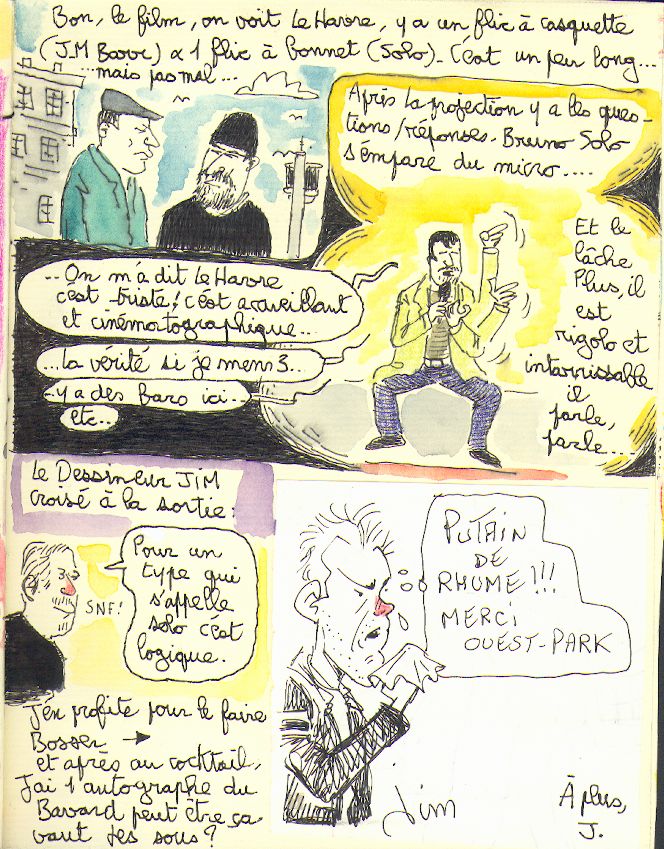 Bon, le film, on voit Le Havre, y a un flic à casquette
(J.M Barr) & 1 flic à bonnet (Solo). C'est un peu long...
...mais pas mal...
Après la projection y a les ques-
tions/réponses. Bruno Solo
s'empare du micro.....
Et le
lâche
Plus, il
est
rigolo et
intarrissable
il
parle,
parle...
..On m'a dit Le Havre
c'est triste! c'est accueillant
et cinématographique...
...la vérité si je mens 3...
..y a des bars ici...
etc...
Le Dessineur JIM
croisé à la sortie:
Pour un
type qui
s'appelle
solo c'est
logique.
SNF!
PUTAIN
DE
RHUME!!!
MERCI
OUEST-PARK
J'en profite pour le faire
Bosser →
et après au cocktail,
J'ai 1 autographe du
Bavard peut être ça
vaut des sous?
Jim
À plus,
J.